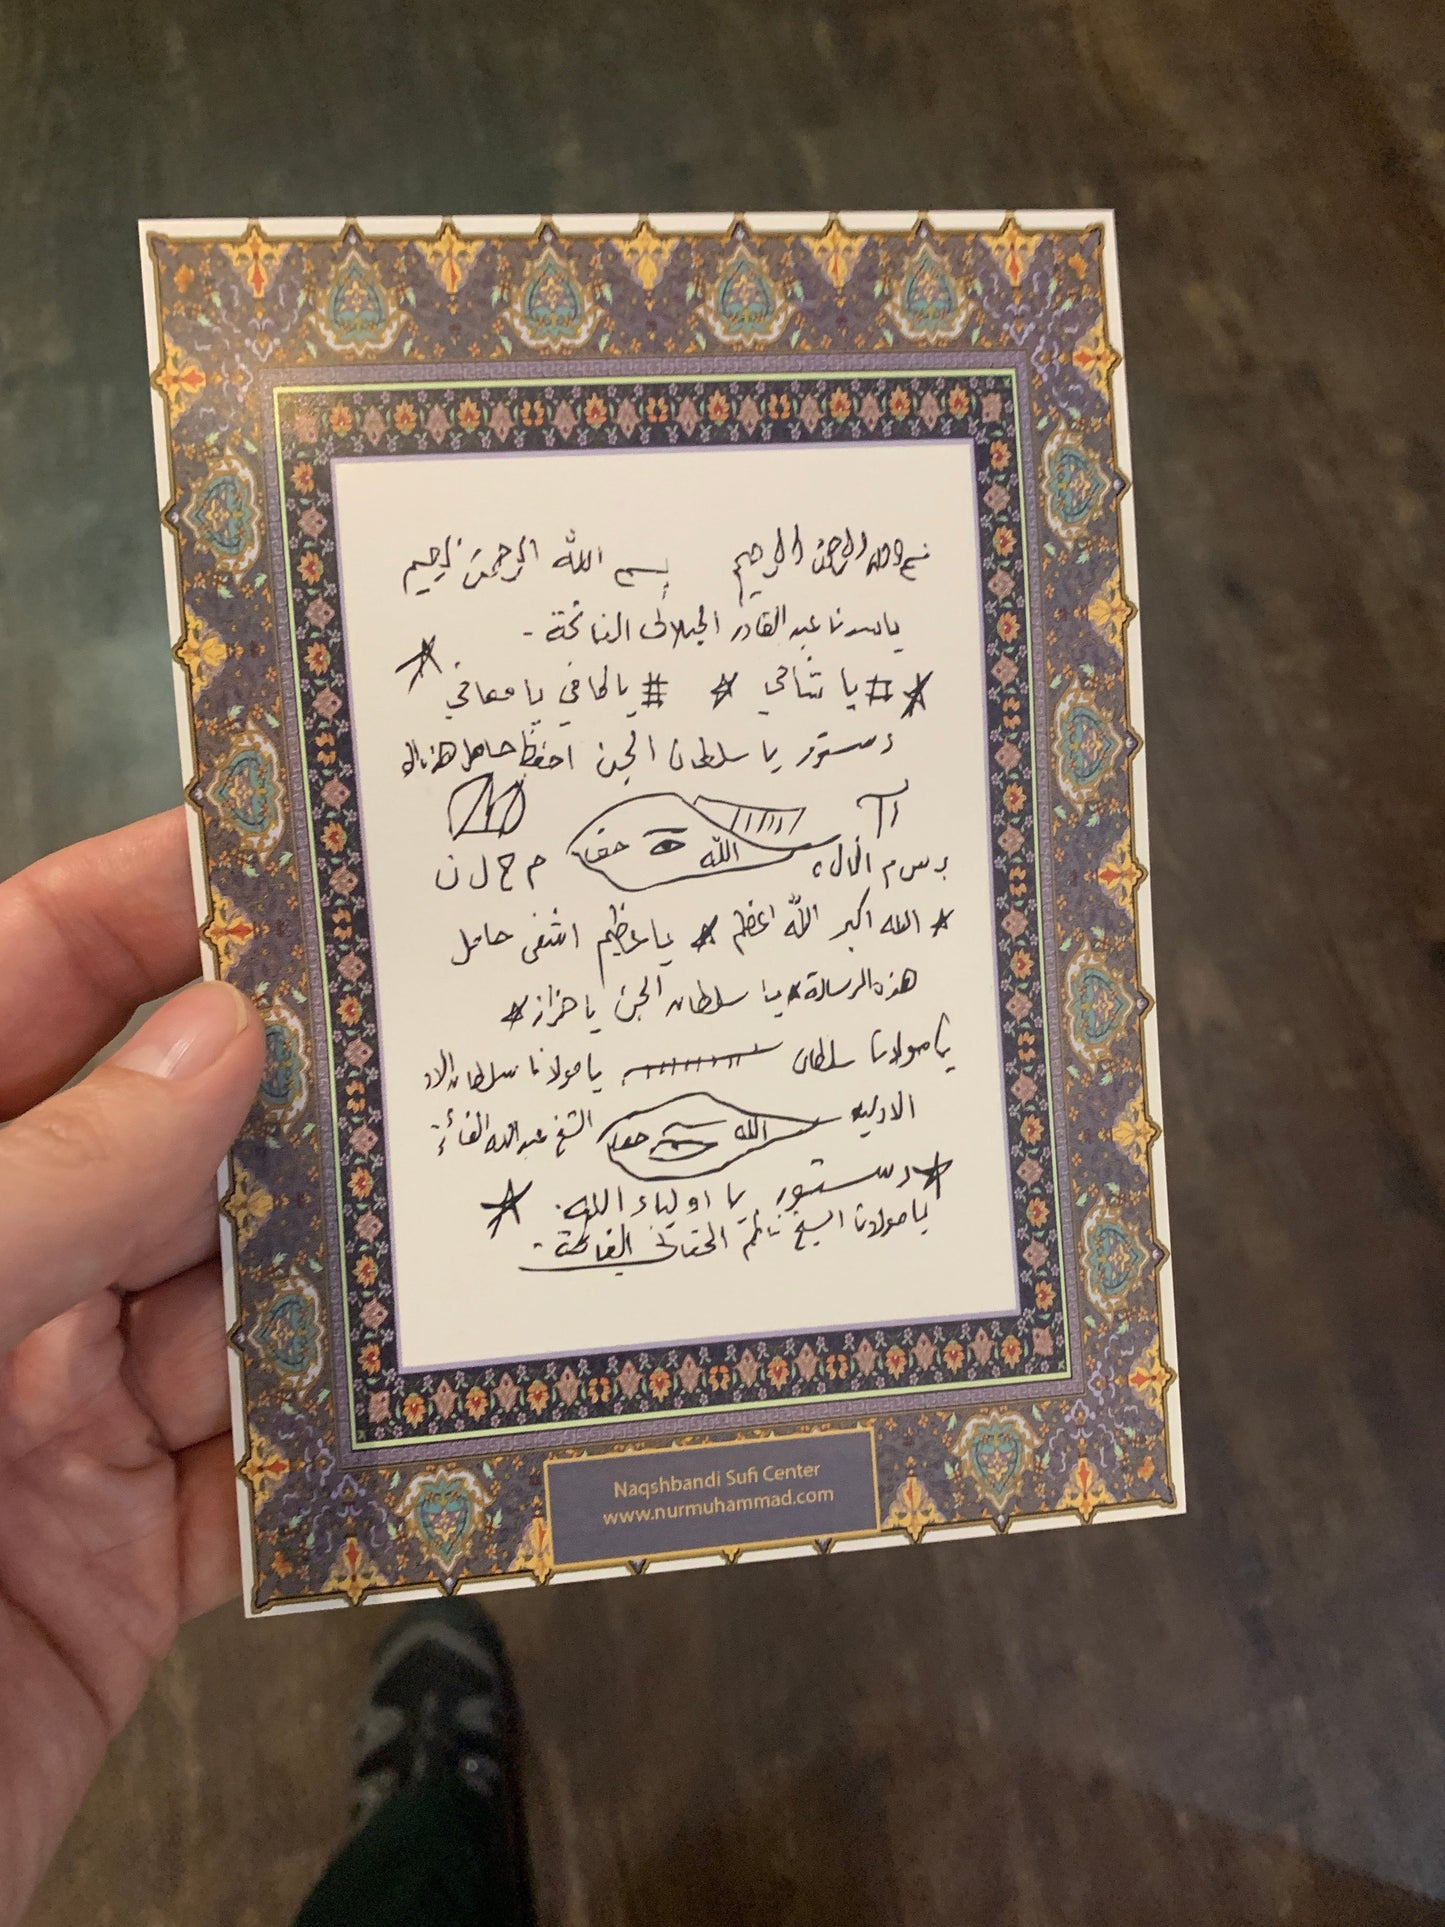 بسم الله الرحمن الرحيم بسم الله الرحمن الرحيم
يا سيدنا عبد القادر الجيلاني الفاتحة -
# يا شافي # يا كافي يا معافي
دستور يا سلطان الجن احفظ حامل هذه ال
الله حق
م ح ل ن
* الله اكبر الله اعظم * يا عظيم اشفى حامل
هذه الرسالة * يا سلطان الجن يا هزاز *
يا مولانا سلطان يا مولانا سلطان الاو
الاولياء الله حق الشيخ عبد الله الفائز
* دستور يا اولياء الله.
يا مولانا الشيخ ناظم الحقاني الفاتحة -
Naqshbandi Sufi Center
www.nurmuhammad.com